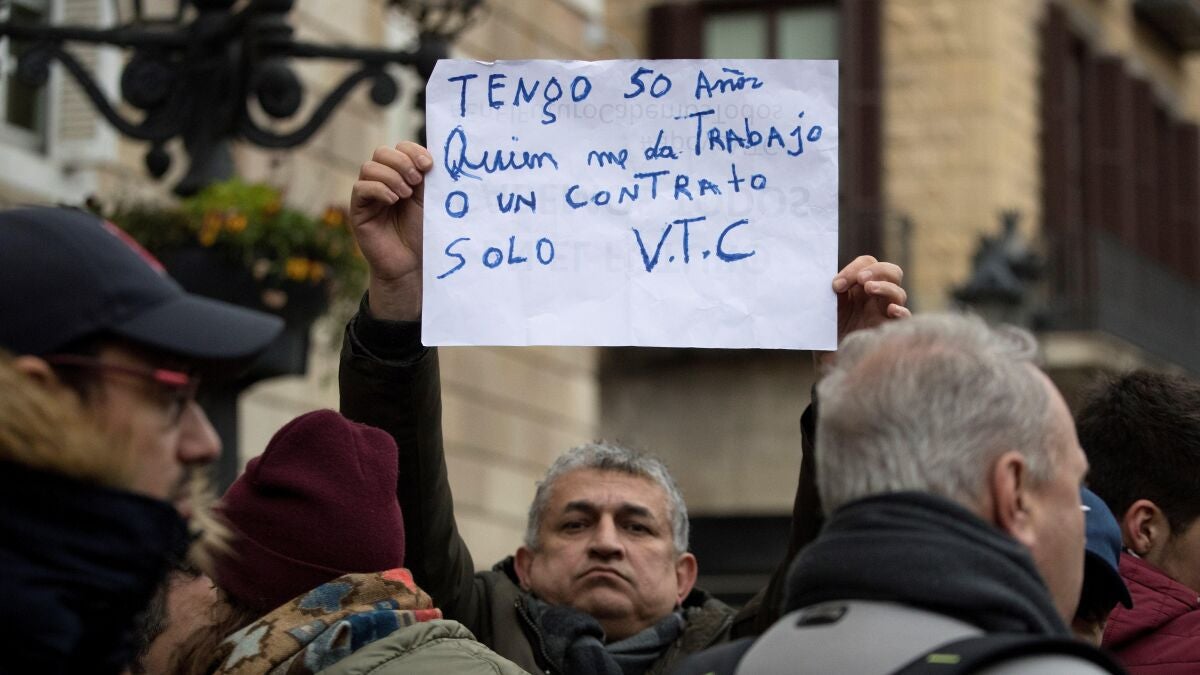 TENgO 50 Años
Quien me da TRABAJO
O UN CONTRATO
SOLO V.T.C